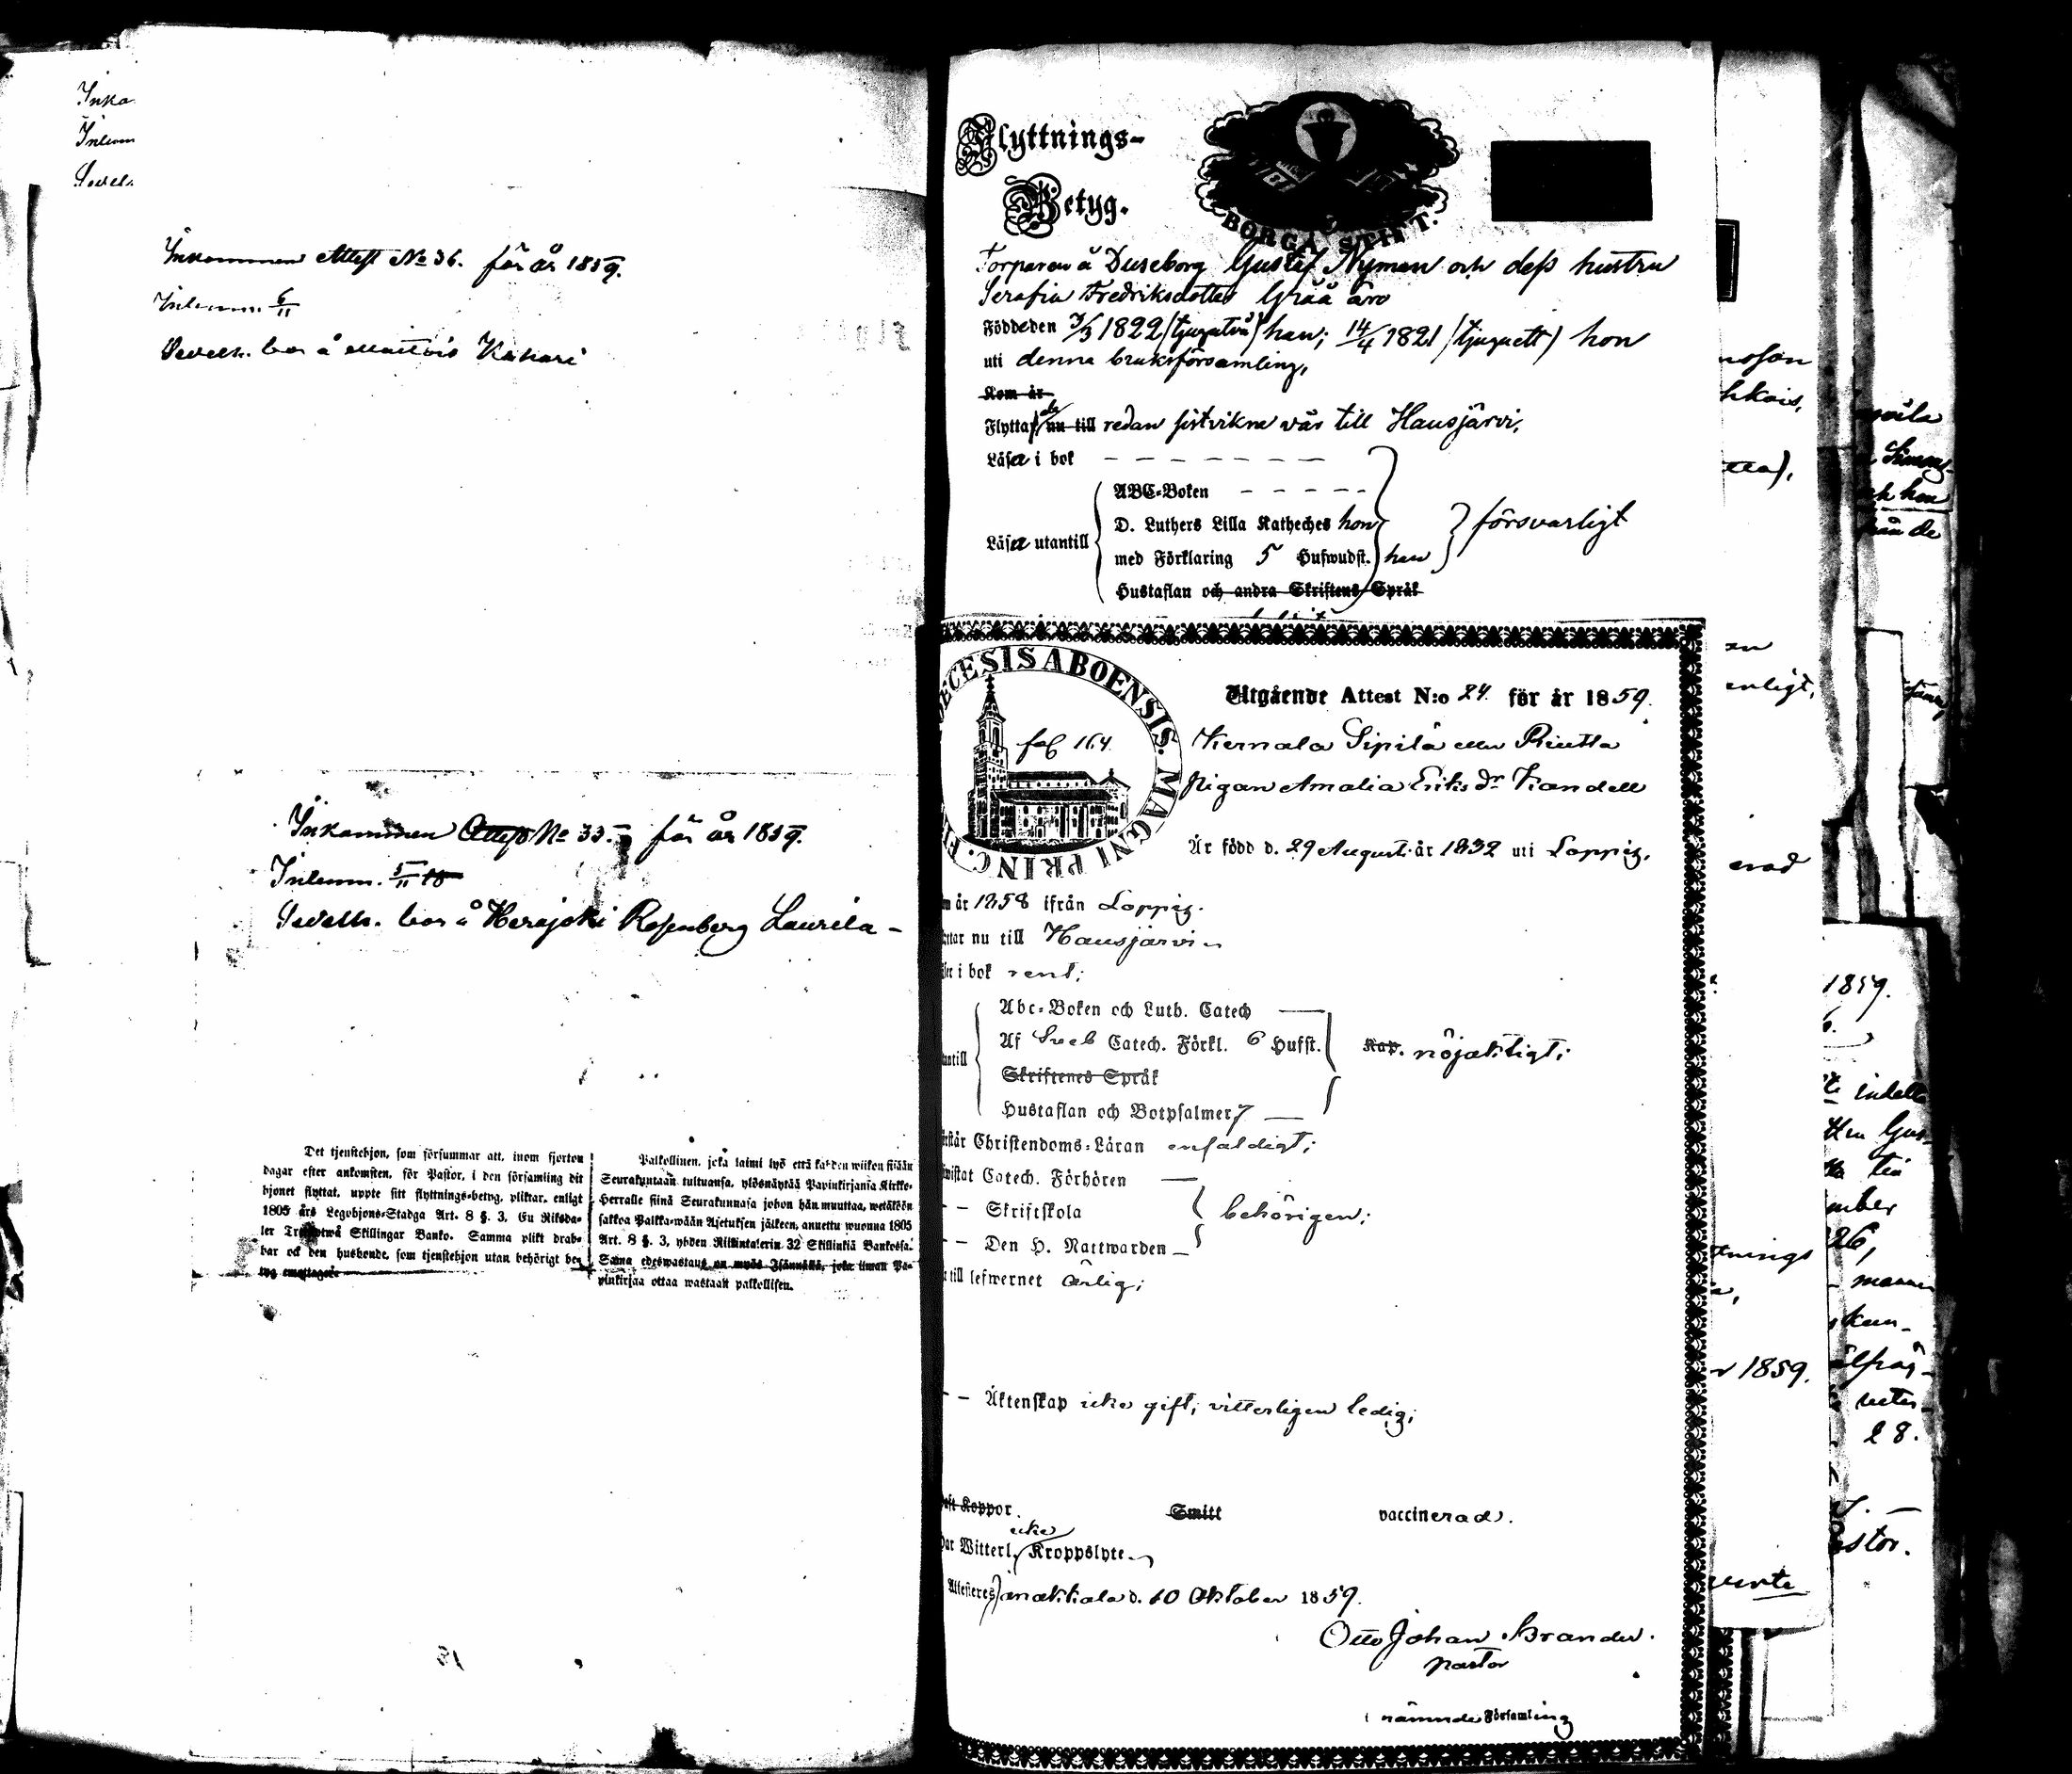 Inko
Inlem
Sedel
Inkommen Attest No 36. för år 1859.
Inlemn. 6/11
Sedelh. bor å Mattois Kahari
Inkommen Attest No 33. för år 1859.
Inlemn. 5/11
Sedelh. bor å Herajoki Rosenberg Laurila -
Det tjenstehjon, som försummar att, inom fjorton
dagar efter ankomsten, för Pastor, i den församling dit
hjonet flyttat, uppte sitt flyttnings-betyg, pliktar, enligt
1805 års Legohjons-Stadga Art. 8 §. 3, En Riksda-
ler Trettiotwå Skillingar Banko. Samma plikt drab-
bar ock den husbonde, som tjenstehjon utan behörigt be-
tyg emottager.
Palkollinen, joka laimi lyö että kahden wiikon sisään
Seurakuntaan tultuansa, ylösnäyttää Papinkirjansa Kirkko-
Herralle siinä Seurakunnasa johon hän muuttaa, wetäköön
sakkoa Palkka-wään Asetuksen jälkeen, annettu wuonna 1805
Art. 8 §. 3, yhden Riksintalerin 32 Skillinkiä Bankossa.
Sama edeswastaus on myös Isännällä, joka ilman Pa-
pinkirjaa ottaa wastaan palkollisen.
Flyttnings-
Betyg.
BORGÅ STIFT.
Torparen å Duseborg Gustaf Nyman och dess hustru
Serafia Fredriksdotter Grää äro
Födde den 3/3 1822 (tjugutvå) han; 14/4 1821 (tjuguett) hon
uti denna bruksförsamling,
Kom år
Flytta nu till redan sistvikne vår till Hausjärvi,
Läsa i bok - - - - - - -
ABC-Boken - - - - -
D. Luthers Lilla Katheches hon
Läsa utantill
med Förklaring 5 Hufwudst. han
försvarligt
Hustaflan och andra Skriftens Språk
DIOECESIS ABOENSIS. MAGNI PRINC. FI
fol 164.
Utgående Attest N:o 24. för år 1859.
Kernala Sipilä eller Rietta
Pigan Amalia Eriks dr Kandell
Är född d. 29 August. år 1832 uti Loppis.
m år 1858 ifrån Loppis.
ttar nu till Hausjärvi
i bok rent;
Abc-Boken och Luth. Catech
Af Sveb Catech. Förkl. 6 Hufst.
Kap. nöjaktigt;
ntill
Skriftenes Språk
Hustaflan och Botpsalmer 7
rstår Christendoms-Läran enfaldigt;
wistat Catech. Förhören
- - Skriftskola
behörigen;
- - Den H. Nattwarden
till lefwernet ärlig;
- - Äktenskap icke gift; vitterligen ledig;
aft Koppor.
Smitt
vaccinerad.
icke
ar Witterl. Kroppslyte
Attesteres Janakkala d. 10 Oktober 1859.
Otto Johan Brander.
Pastor
nämnde Församling
nsson
hkois,
en
enligt,
erad
tnings
r 1859.
hon
från de
1859.
6.
indelta
Gus
tie
mber
26,
28.